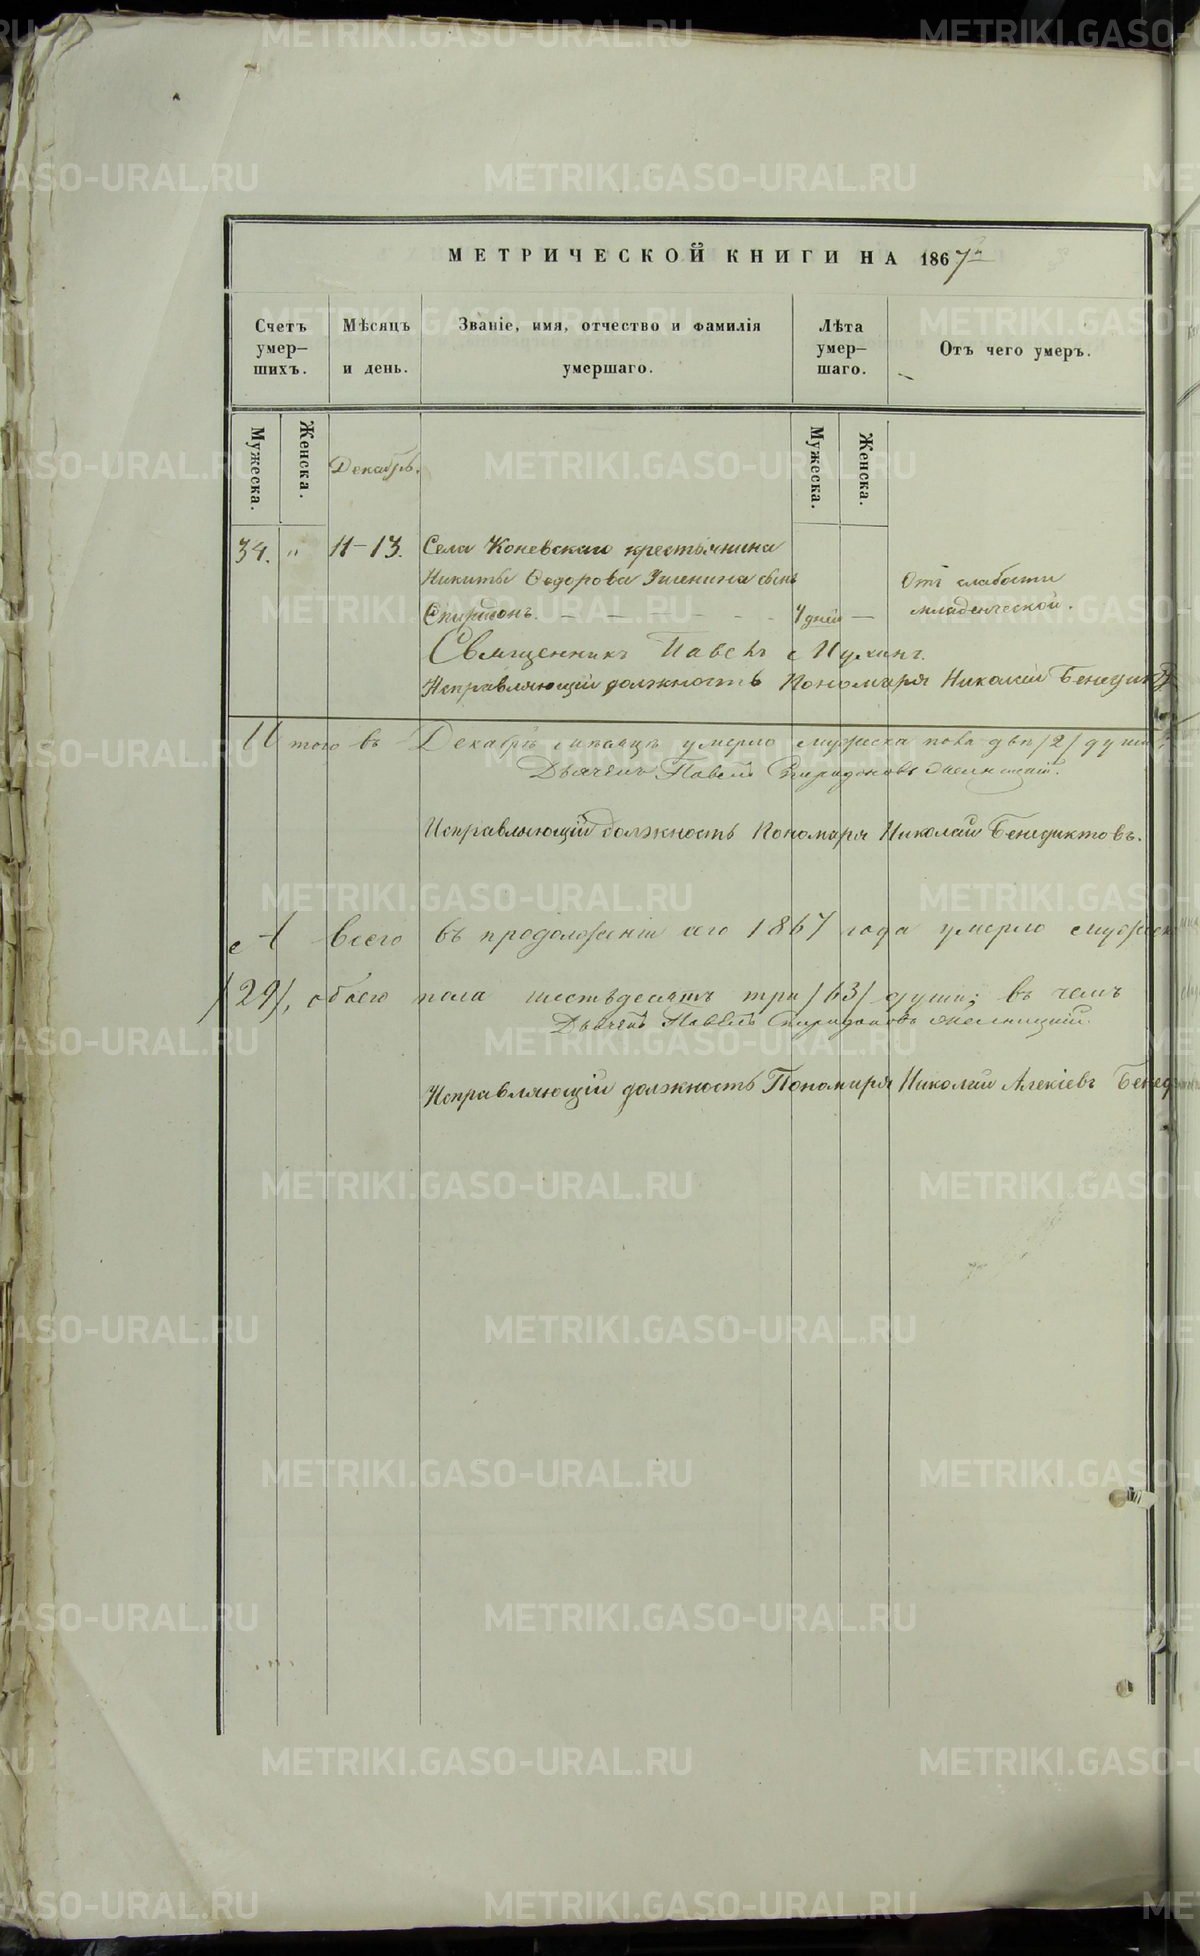 МЕТРИЧЕСКОЙ КНИГИ НА 1867
Счетъ умер-шихъ.
Мѣсяцъ и день.
Званіе, имя, отчество и фамилія умершаго.
Лѣта умер-шаго.
Отъ чего умеръ.
Мужеска.
Женска.
Декабрь.
Мужеска.
Женска.
34. " 11-13. Села Коневскаго крестьянина
Никиты Ѳедорова сынъ
Спиридонъ.
дней
Отъ слабости
младенческой.
Священникъ Павелъ Мухинъ.
Исправляющій должность Пономаря Николай
Итого въ Декабрѣ мѣсяцѣ умерло мужеска пола двѣ /2/ души,
Дьячекъ Павелъ Спиридоновъ
Исправляющій должность Пономаря Николай Бенедиктовъ.
А всего въ продолженіи сего 1867 года умерло
/29/, обоего пола шестьдесятъ три /63/ души; въ чемъ
Дьячекъ Павелъ Спиридоновъ
Исправляющій должность Пономаря Николай Алексіевъ
METRIKI.GASO-URAL.RU